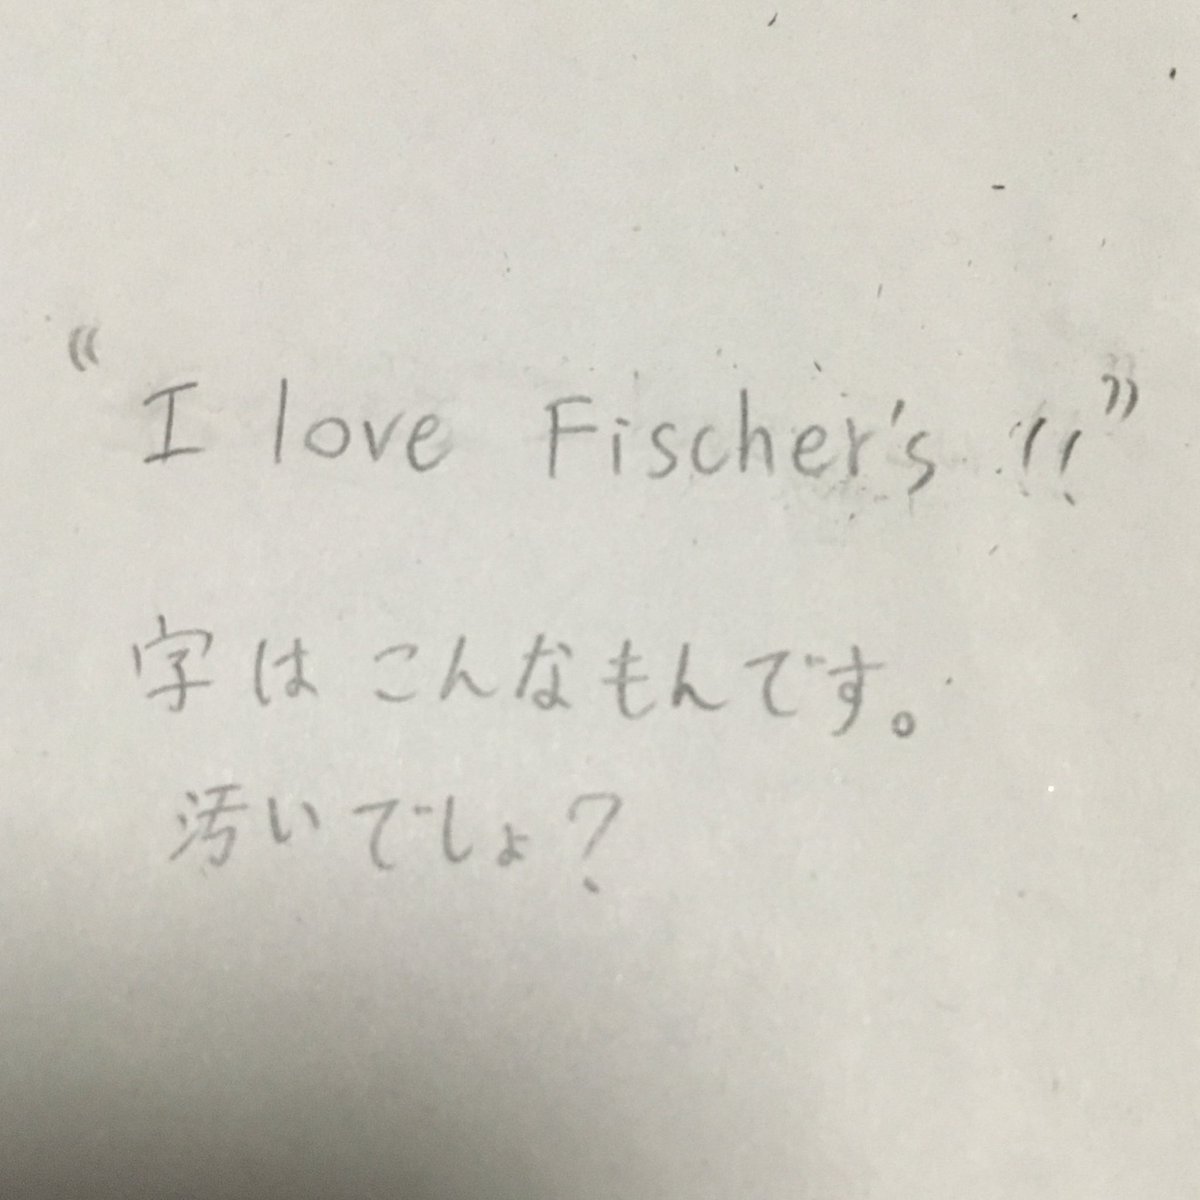 “I love Fischer's !!”
字はこんなもんです。
汚いでしょ?